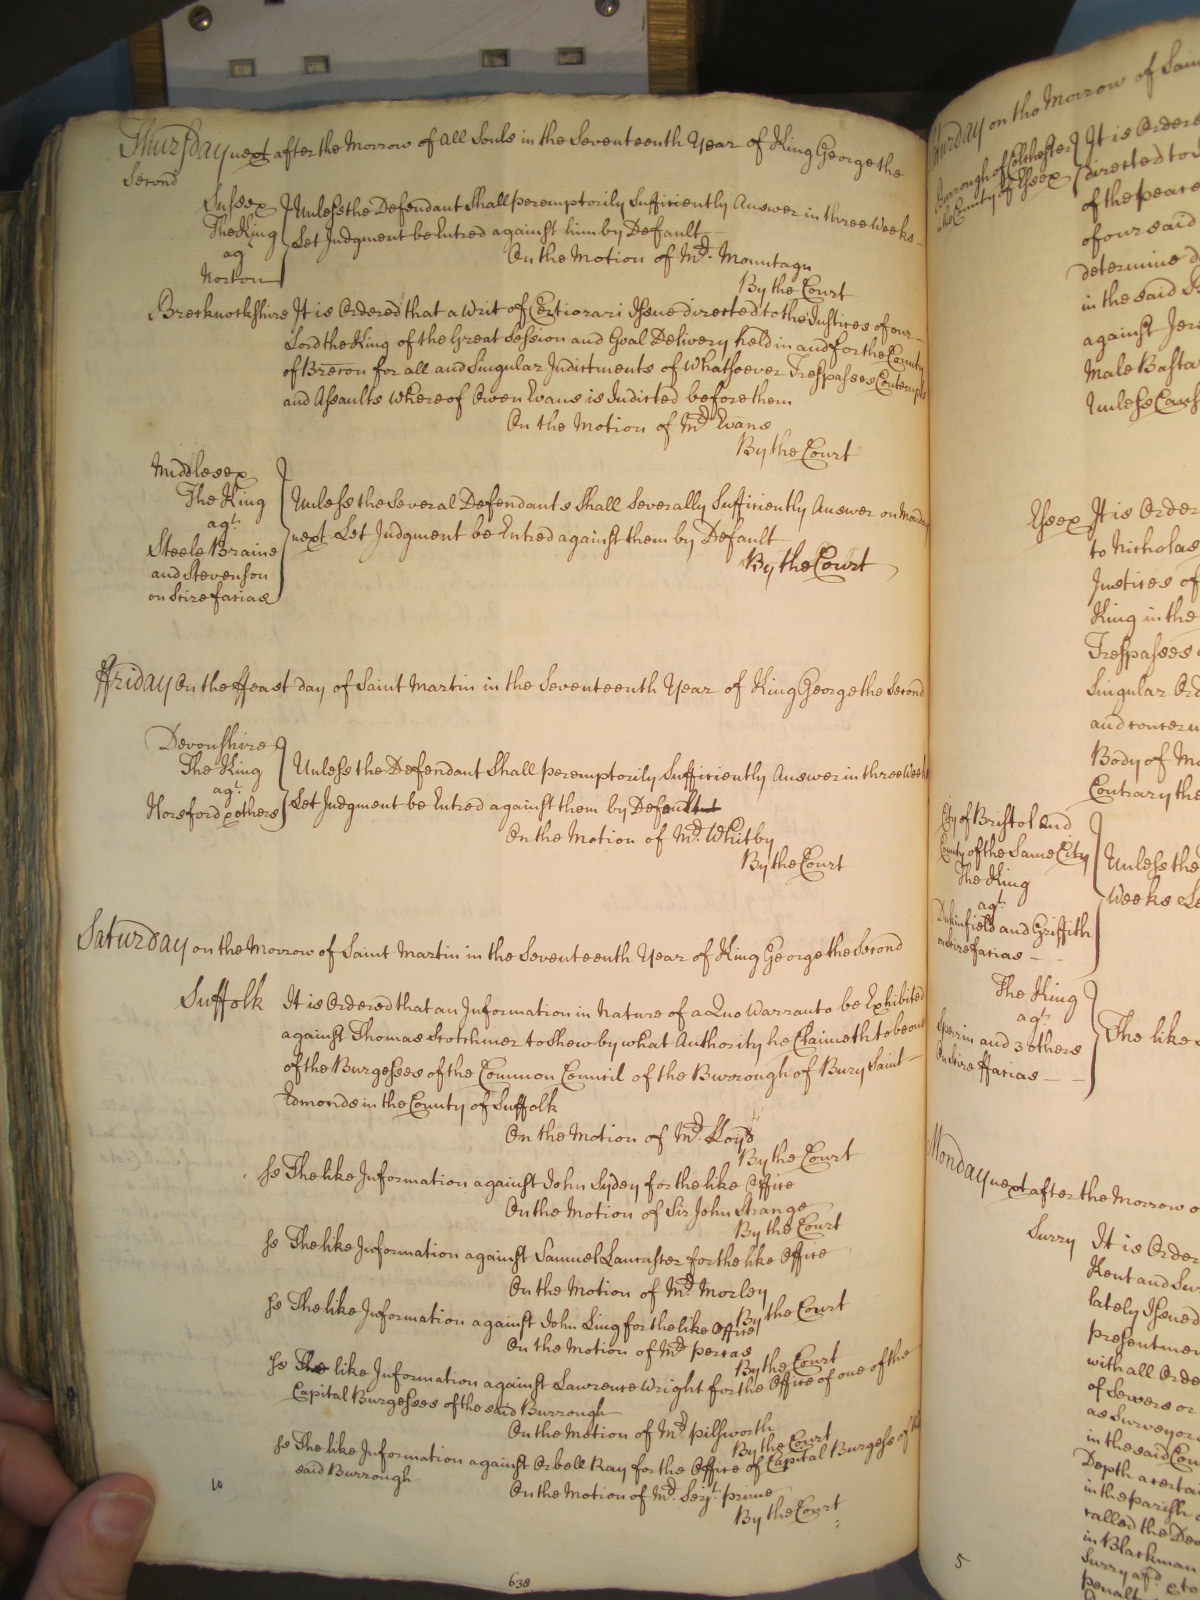 Thursday next after the Morrow of All Souls in the Seventeenth Year of King George the
Second
Sussex
The King
agt
Norton
Unless the Defendant Shall peremptorily Sufficiently Answer in three Weeks
Let Judgment be Entred against him by Default
On the Motion of Mr. Mountagu
By the Court
Brecknockshire It is Ordered that a Writ of Certiorari Issue directed to the Justices of our
Lord the King of the Great Session and Goal Delivery held in and for the County
of Brecon for all and Singular Indictments of Whatsoever Trespasses Contempts
and Assaults Whereof Owen Evans is Indicted before them
On the Motion of Mr Evans
By the Court
Middlesex
The King
agt.
Steele Braine
and Stevenson
on Scire facias
Unless the Several Defendants Shall Severally Sufficiently Answer on Monday
next Let Judgment be Entred against them by Default
By the Court
ffriday On the ffeast day of Saint Martin in the Seventeenth Year of King George the Second
Devonshire
The King
agt.
Horsford & others
Unless the Defendant Shall peremptorily Sufficiently Answer in three Weeks
Let Judgment be Entred against them by Default
On the Motion of Mr. Whitby
By the Court
Saturday on the Morrow of Saint Martin in the Seventeenth Year of King George the Second
Suffolk It is Ordered that an Information in Nature of a Quo Warranto be Exhibited
against Thomas Scotchmer to Shew by what Authority he Claimeth to be one
of the Burgesses of the Common Council of the Burrough of Bury Saint
Edmonds in the County of Suffolk
On the Motion of Mr. Lloyd
By the Court
ss The like Information against John Sydey for the like Office
On the Motion of Sir John Strange
By the Court
ss The like Information against Samuel Lancaster for the like Office
On the Motion of Mr Morley
By the Court
ss The like Information against John Ling for the like Office
On the Motion of Mr
By the Court
ss The like Information against Lawrence Wright for the Office of one of the
Capital Burgesses of the said Burrough
On the Motion of Mr pilsworth
By the Court
ss The like Information against Orbell Ray for the Office of Capital Burgess of the
said Burrough
On the Motion of Mr. Serjt. prime
By the Court
10
638
Saturday on the Morrow of Sain
Burrough of Colchester
in the County of Essex
It is Ordere
directed to
of the peace
of our said
determine d
in the said B
against Jer
Male Bastar
Unless Caus
Essex It is Order
to Nicholas
Justices of
King in the
Trespasses
Singular Ord
and concern
Body of Ma
Contrary the
City of Bristol and
County of the Same City
The King
agt.
and Griffith
on Scire facias
Unless the
Weeks Le
The King
agt.
and 3 others
On Scire ffacias
The like
Monday next after the Morrow o
Surry It is Order
Kent and Sur
lately Issued
presentmen
with all Orde
of Sewers or
as Surveyor
in the said Cou
Depth a certai
in the parish
called the De
in Blackman
Surry afd. & to
penalt
5